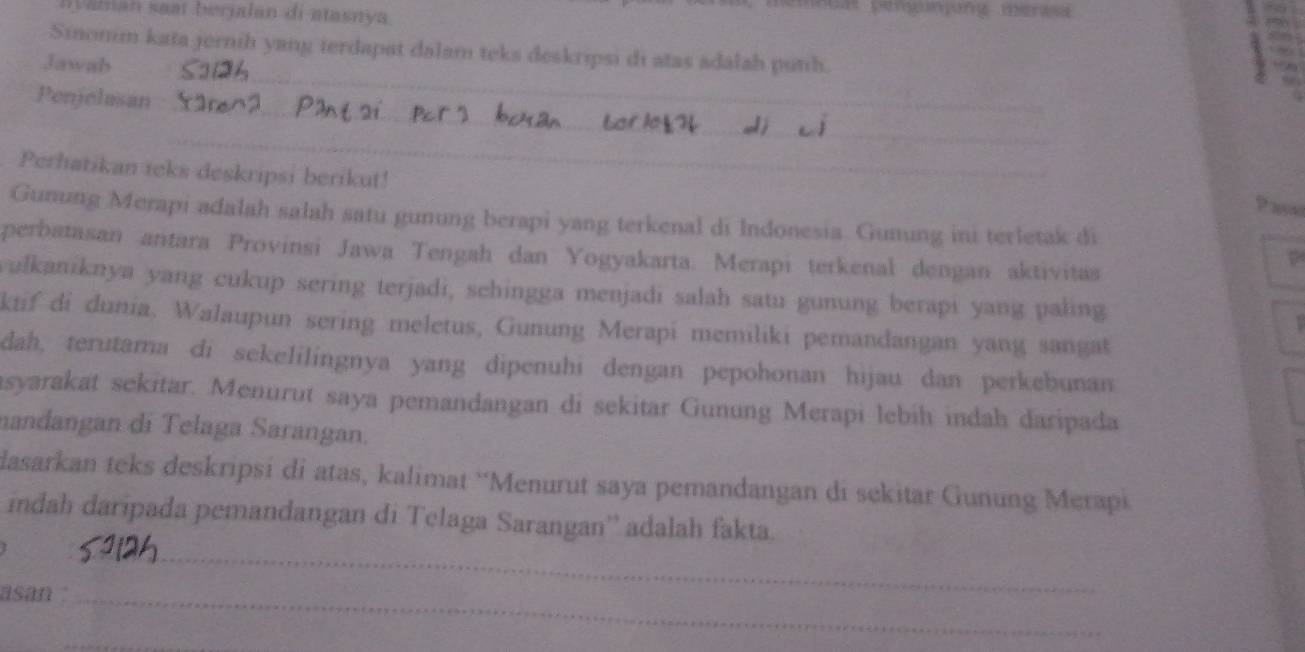 nyaman saat berjalan di atasnya pengunjung merasa
Sinonim kata jernih yang terdapat dalam teks deskripsi di atas adalah putih.
Jawab salah
Penjelasan karena Pantai
Perhatikan teks deskripsi berikut!
Gunung Merapi adalah salah satu gunung berapi yang terkenal di Indonesia. Gunung ini terletak di
perbatasan antara Provinsi Jawa Tengah dan Yogyakarta. Merapi terkenal dengan aktivitas
vulkaniknya yang cukup sering terjadi, sehingga menjadi salah satu gunung berapi yang paling
ktif di dunia. Walaupun sering meletus, Gunung Merapi memiliki pemandangan yang sangat
dah, terutama di sekelilingnya yang dipenuhi dengan pepohonan hijau dan perkebunan
asyarakat sekitar. Menurut saya pemandangan di sekitar Gunung Merapi lebih indah daripada
mandangan di Telaga Sarangan.
dasarkan teks deskripsi di atas, kalimat “Menurut saya pemandangan di sekitar Gunung Merapi
indah daripada pemandangan di Telaga Sarangan” adalah fakta.
salah
asan :